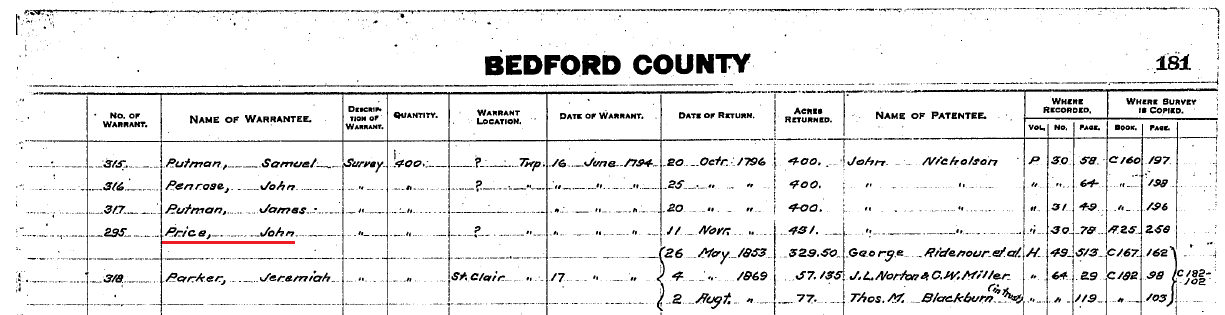 BEDFORD COUNTY 181
No. of Warrant. Name of Warrantee. Description of Warrant. Quantity. Warrant Location. Date of Warrant. Date of Return. Acres Returned. Name of Patentee. Where Recorded. Where Survey is Copied.
Vol. No. Page. Book. Page.
315 Putman, Samuel Survey 400. ? Twp. 16 June 1794 20 Octr. 1796 400. John Nicholson P 30 58 C160 197
316 Penrose, John " " ? " " " " 25 " " 400. " " " " 64 " 198
317 Putman, James " " ? " " " " 20 " " 400. " " " 31 49 " 196
295 Price, John " " ? " " " " 11 Novr. " 431. " " " 30 78 A25 258
26 May 1853 329.50 George Ridenour et al. H 49 513 C167 162
318 Parker, Jeremiah " " St. Clair " 17 " " 4 " 1869 57.135 J.L. Norton & C.W. Miller " 64 29 C182 98 C182-102
2 Augt. " 77. Thos. M. Blackburn (in trust) " " 119 " 103